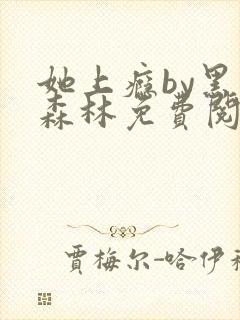 她上瘾by黑
森林免费阅
贾梅尔-哈伊利